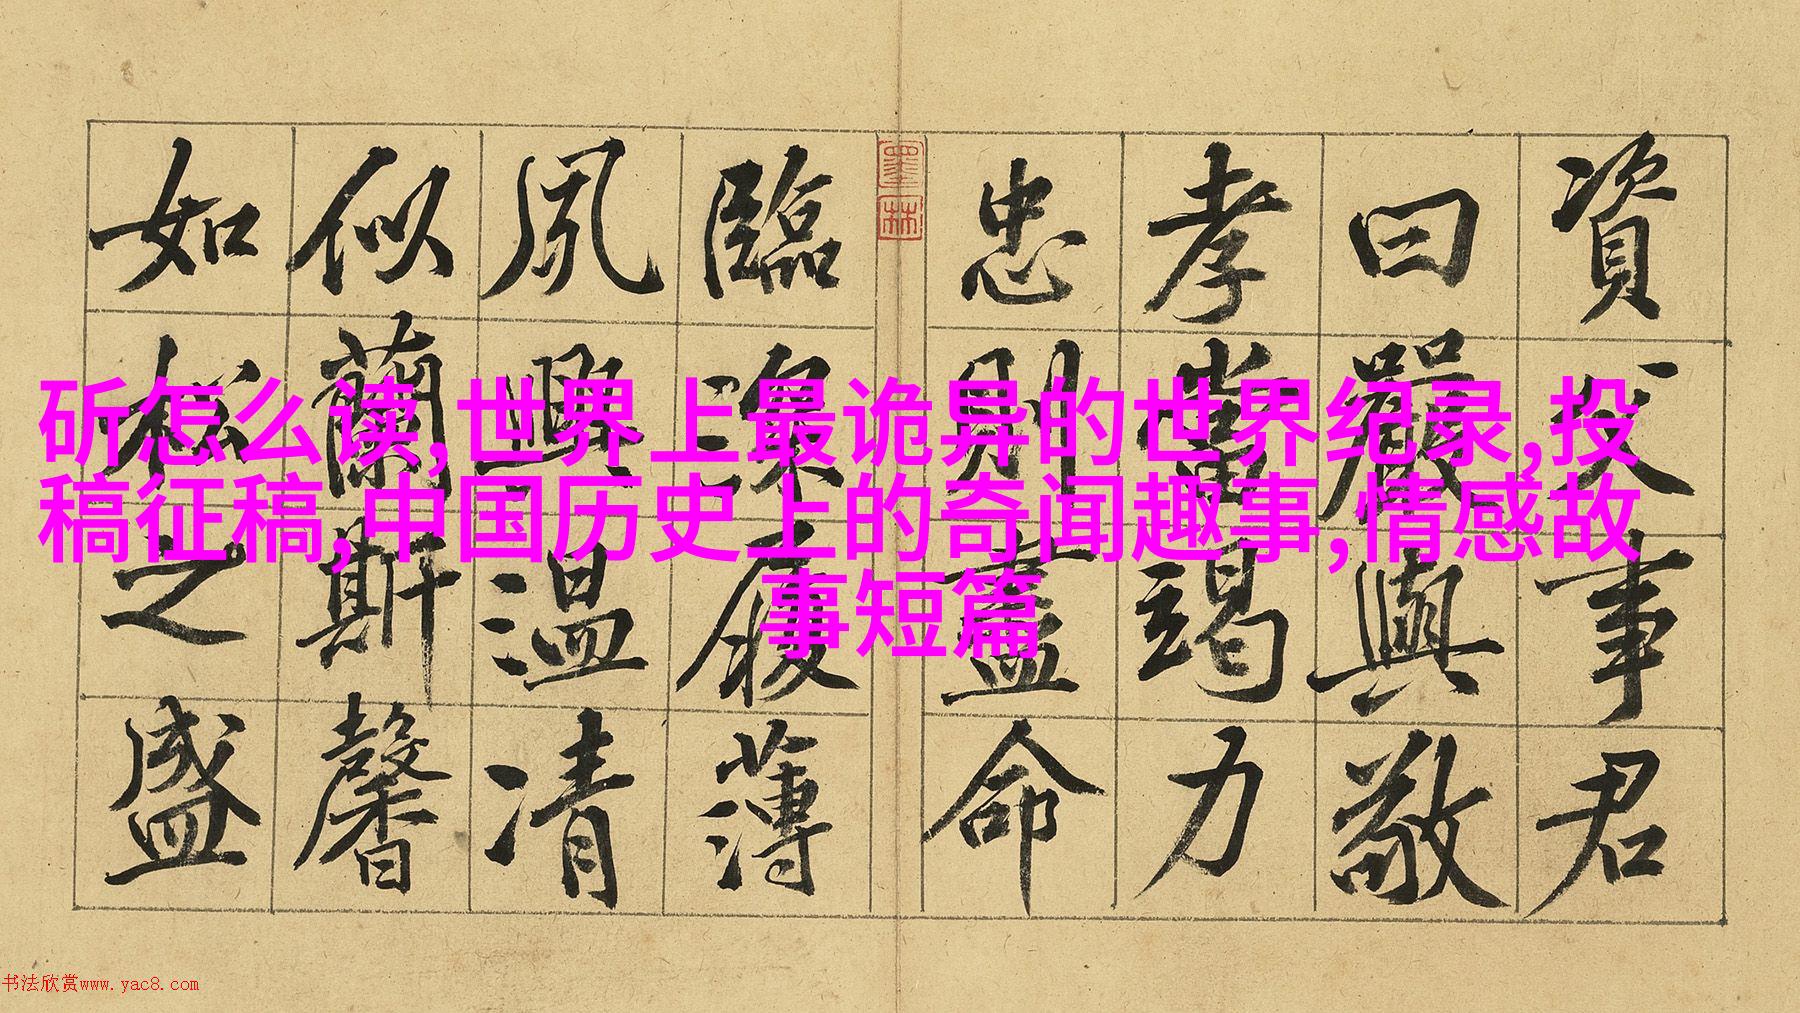 資父事君
曰嚴與敬
孝當竭力
忠則盡命
臨深履薄
夙興温凊
似蘭斯馨
如松之盛
墨林
斫怎么读,世界上最诡异的世界纪录,投
稿征稿,中国历史上的奇闻趣事,情感故
事短篇
书法欣赏www.yac8.com